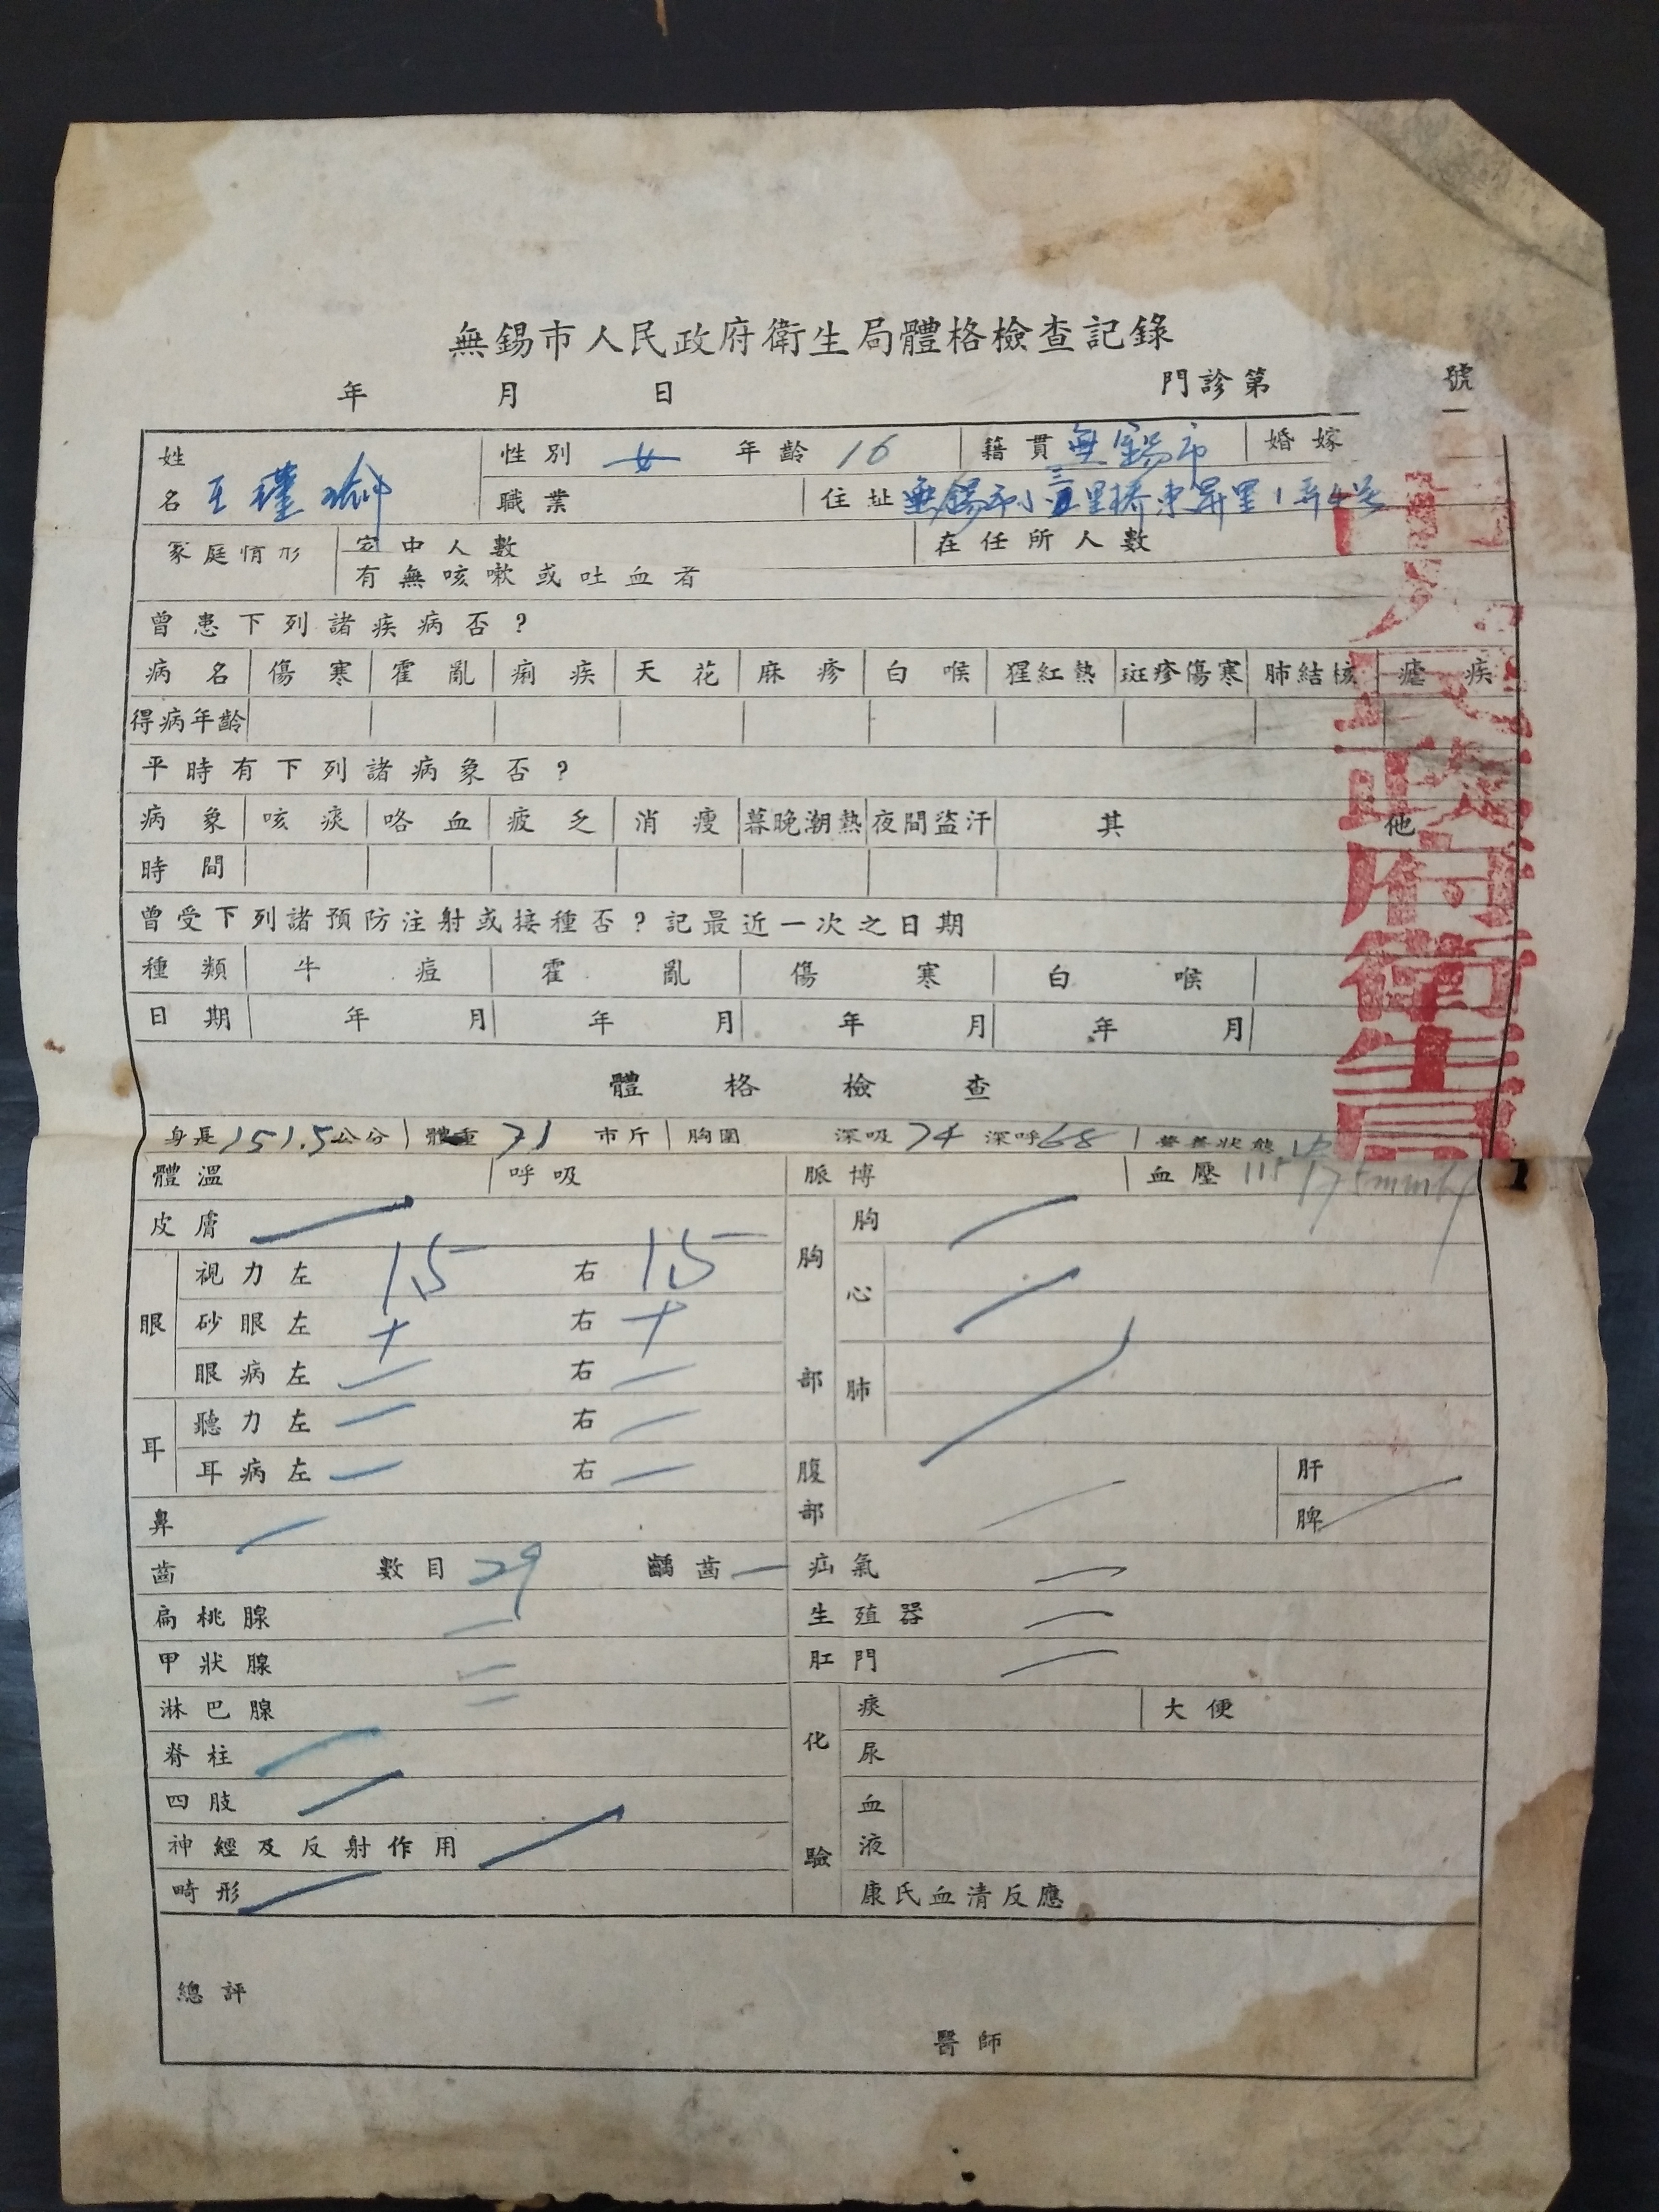 無錫市人民政府衛生局體格檢查記錄
年 月 日 門診第 號
姓名 王瑾瑜 性別 女 年齡 16 籍貫 無錫市 婚嫁
職業 住址 無錫市小三里橋東昇里1弄4号
家庭情形 家中人數 在任所人數
有無咳嗽或吐血者
曾患下列諸疾病否?
病名 傷寒 霍亂 痢疾 天花 麻疹 白喉 猩紅熱 斑疹傷寒 肺結核 瘧疾
得病年齡
平時有下列諸病象否?
病象 咳痰 咯血 疲乏 消瘦 暮晚潮熱 夜間盜汗 其他
時間
曾受下列諸預防注射或接種否?記最近一次之日期
種類 牛痘 霍亂 傷寒 白喉
日期 年 月 年 月 年 月 年 月
體格檢查
身長 151.5 公分 體重 71 市斤 胸圍 深吸 74 深呼 68 營養狀態 中
體溫 呼吸 脈博 血壓 115/75mmHg
皮膚
眼 視力左 1.5 右 1.5
砂眼左 + 右 +
眼病左 — 右 —
耳 聽力左 — 右 —
耳病左 — 右 —
鼻 —
齒 數目 29 齲齒 —
扁桃腺 —
甲狀腺 —
淋巴腺 —
脊柱 —
四肢 —
神經及反射作用 —
畸形 —
胸部 胸 —
心 —
肺 —
腹部 — 肝
脾 —
疝氣 —
生殖器 —
肛門 —
化驗 痰 大便
尿
血液
康氏血清反應
總評
醫師
市人民政府衛生局